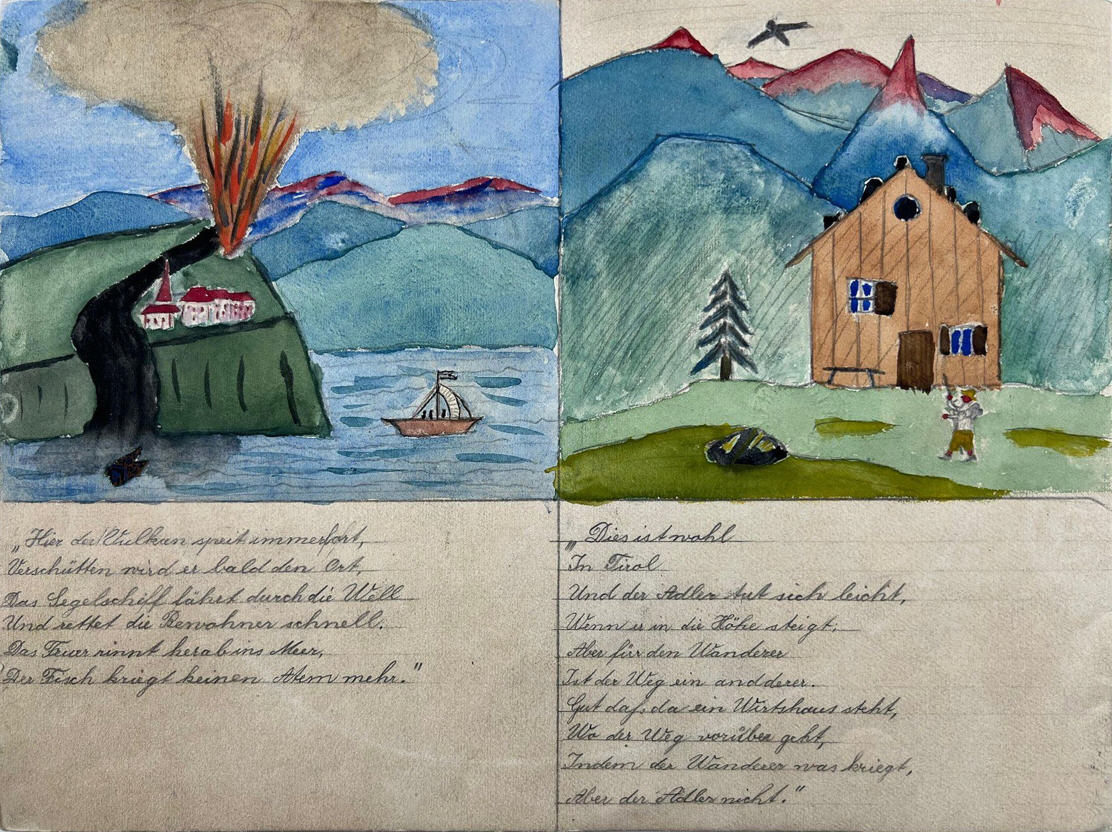 „Hier der Vulkan speit immerfort,
Verschütten wird er bald den Ort,
Das Segelschiff fährt durch die Wöll
Und rettet die Bewohner schnell.
Das Feuer rinnt herab ins Meer,
Der Fisch kriegt keinen Atem mehr."
„Dies ist wohl
In Tirol
Und der Adler tut sich leicht,
Wenn er in die Höhe steigt,
Aber für den Wanderer
Ist der Weg ein andderer.
Gut daß da ein Wirtshaus steht,
Wo der Weg vorüber geht,
Indem der Wanderer was kriegt,
Aber der Adler nicht."